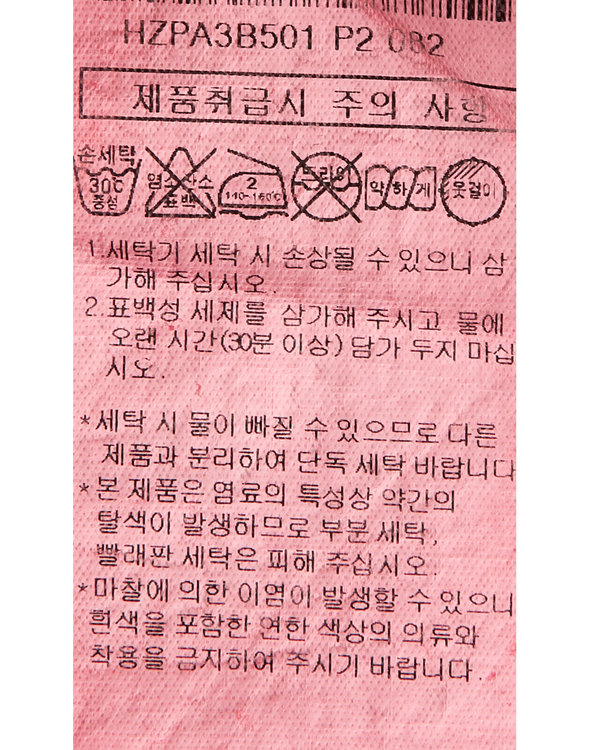 HZPA3B501 P2 082
제품취급시 주의 사항
손세탁 30℃ 중성
염소산소 표백
2 140-160℃
드라이
약하게
옷걸이
1.세탁기 세탁 시 손상될 수 있으니 삼
가해 주십시오.
2.표백성 세제를 삼가해 주시고 물에
오랜 시간(30분 이상) 담가 두지 마십
시오.
*세탁 시 물이 빠질 수 있으므로 다른
제품과 분리하여 단독 세탁 바랍니다
*본 제품은 염료의 특성상 약간의
탈색이 발생하므로 부분 세탁,
빨래판 세탁은 피해 주십시오.
*마찰에 의한 이염이 발생할 수 있으니
흰색을 포함한 연한 색상의 의류와
착용을 금지하여 주시기 바랍니다.